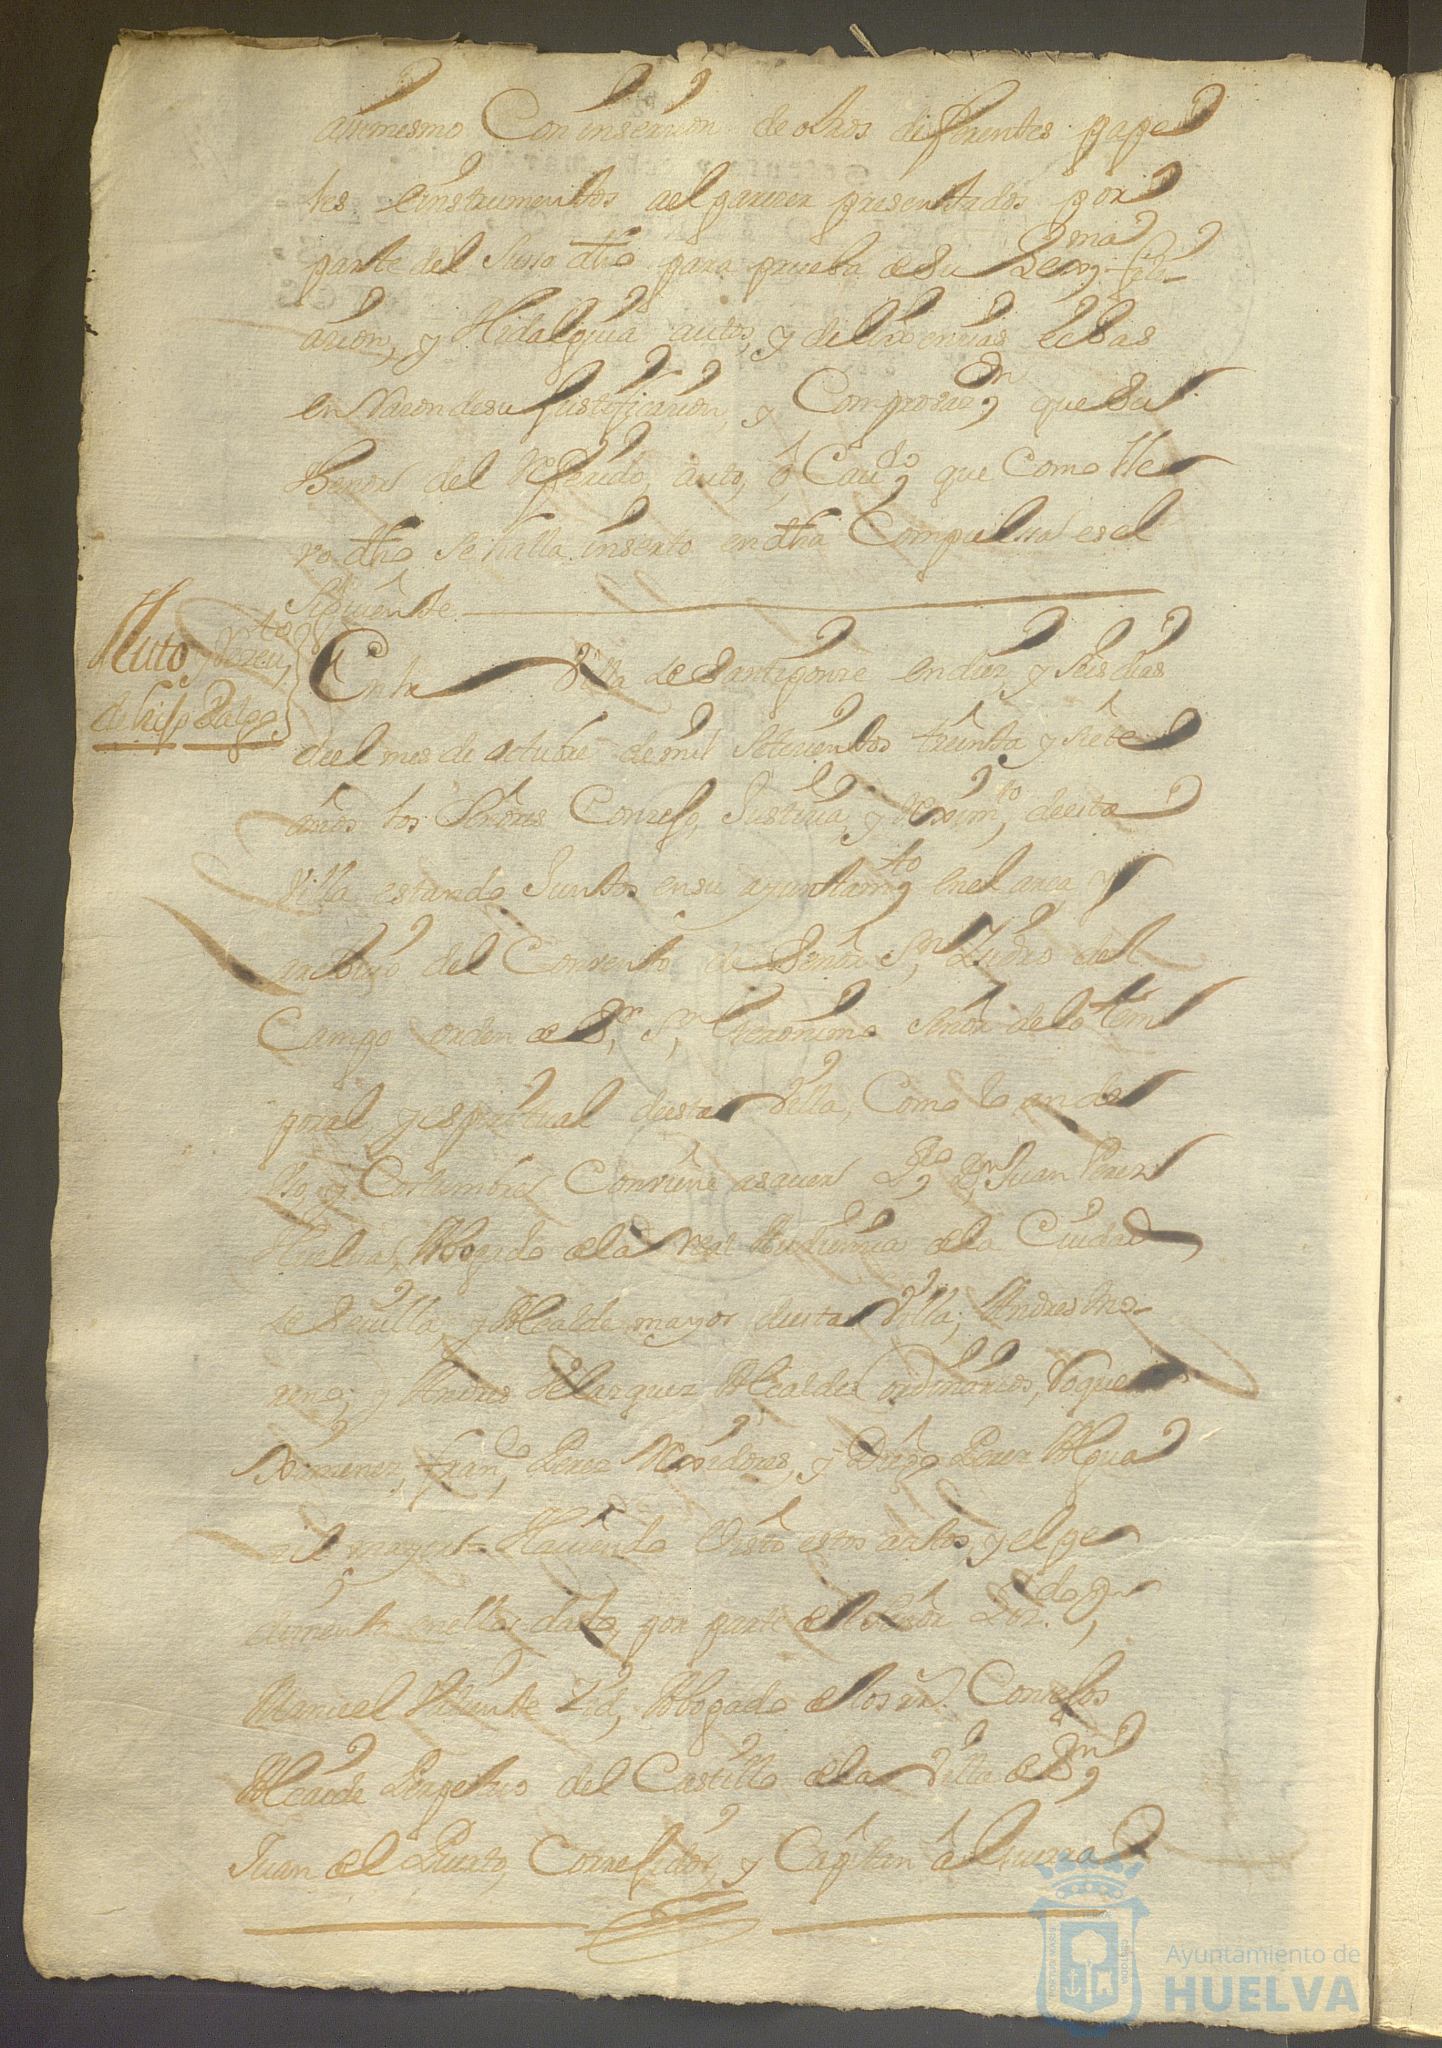 asimismo Con insercion de otros diferentes pape
les e instrumentos al parecer presentados por
parte del Suso dho para prueba de su Lexma filia-
cion, y Hidalguia autos, y dilixencias echas
en Razon de su Justificacion, y Comprobazn, que su
thenor del Referido, auto, ô Cavdo, que como lle
vo dho se halla inserto en dha Compulsa es el
Siguiente.
Auto y Rezevto
de hijo Dalgo
En la Villa de Santiponze en diez, y seis dias
de el mes de octubre de mil setecientos treinta y siete
años los Señores Consejo, Justicia, y Reximto, de esta
Villa estando Juntos en su ayuntamto en el area, y
archivo del Convento de Señor Sn Ysidro del
Campo orden de Sr, Sn, Gheronimo Señor de lo tem
poral y espiritual de esta Villa, Como lo an de
Vso, y Costumbre Conviene a saver Ldo Dn Juan Perez
Huelva, Abogado de la Real Audiencia de la Ciudad
de Sevilla, y Alcalde mayor de esta Villa, Andres Mo-
reno, y Andres Velazquez Alcaldes ordinarios, Roque
Ximenez, Franco, Perez Rexidores, y Diego Perez Algua
zil mayor Haviendo Visto estos autos, y el pe
dimento en ellos dado, por parte de el Señor Lizdo Dn,
Manuel Vizente Cid, Abogado de los Rs. Consejos
Alcaide Perpetuo del Castillo de la Villa de Sn,
Juan de el Puerto, Correjidor, y Capitan â Guerra
Ayuntamiento de
HUELVA